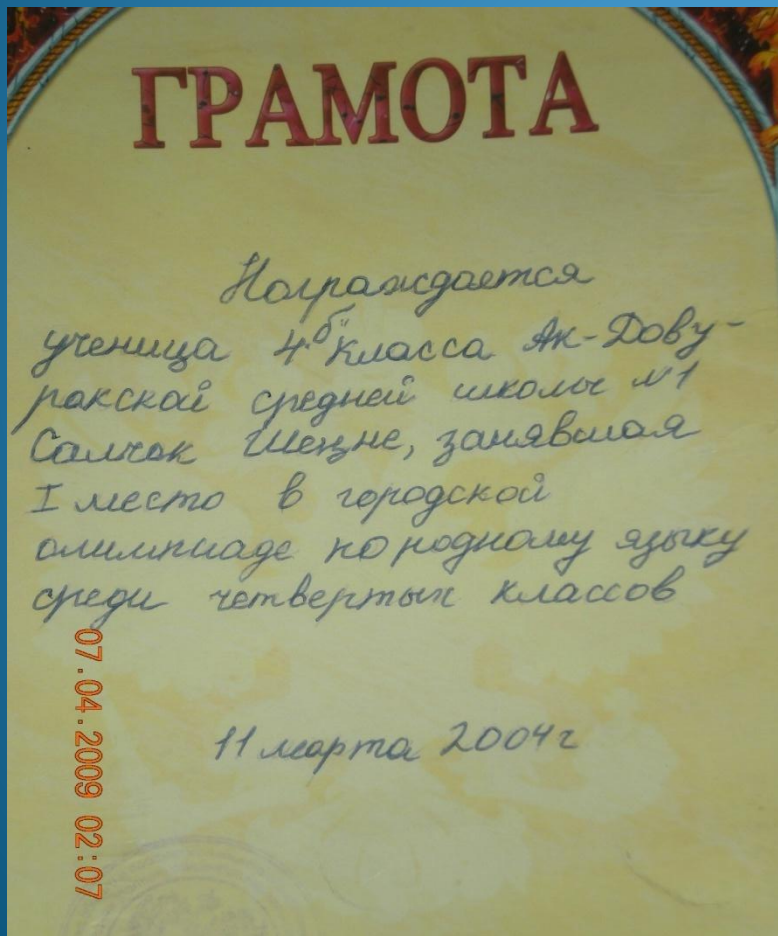 ГРАМОТА
Награждается
ученица 4"б" класса Ак-Дову-
ракской средней школы №1
Салчак Шеңне, занявшая
I место в городской
олимпиаде по родному языку
среди четвертых классов
11 марта 2004г
07.04.2009 02:07